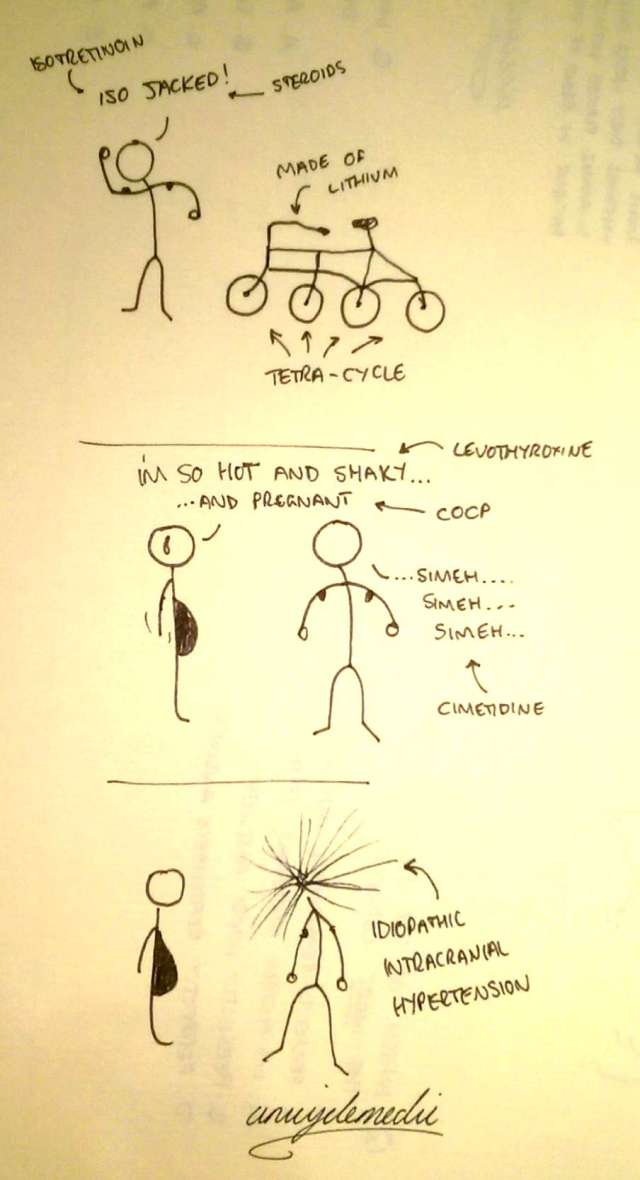 ISOTRETINOIN
ISO JACKED!
STEROIDS
MADE OF
LITHIUM
TETRA-CYCLE
LEVOTHYROXINE
I'M SO HOT AND SHAKY...
...AND PREGNANT
COCP
...SIMEH....
SIMEH...
SIMEH...
CIMETIDINE
IDIOPATHIC
INTRACRANIAL
HYPERTENSION
unicyclemedic